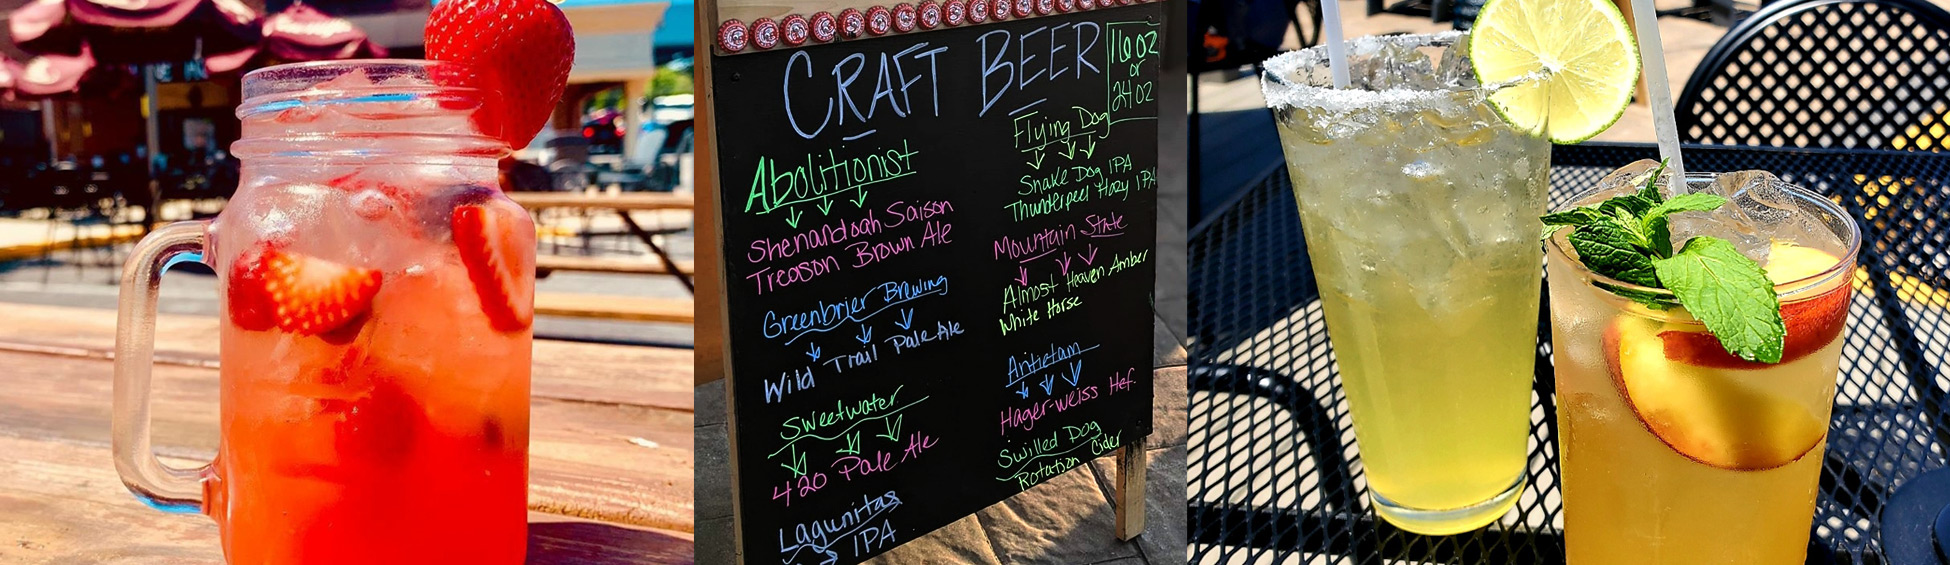 CRAFT BEER
16 OZ
or
24 OZ
Abolitionist
Shenandoah Saison
Treason Brown Ale
Greenbrier Brewing
Wild Trail Pale Ale
Sweetwater
420 Pale Ale
Lagunitas
IPA
Flying Dog
Snake Dog IPA
Thunderpeel Hazy IPA
Mountain State
Almost Heaven Amber
White Horse
Antietam
Hager-weiss Hef.
Swilled Dog
Rotation Cider